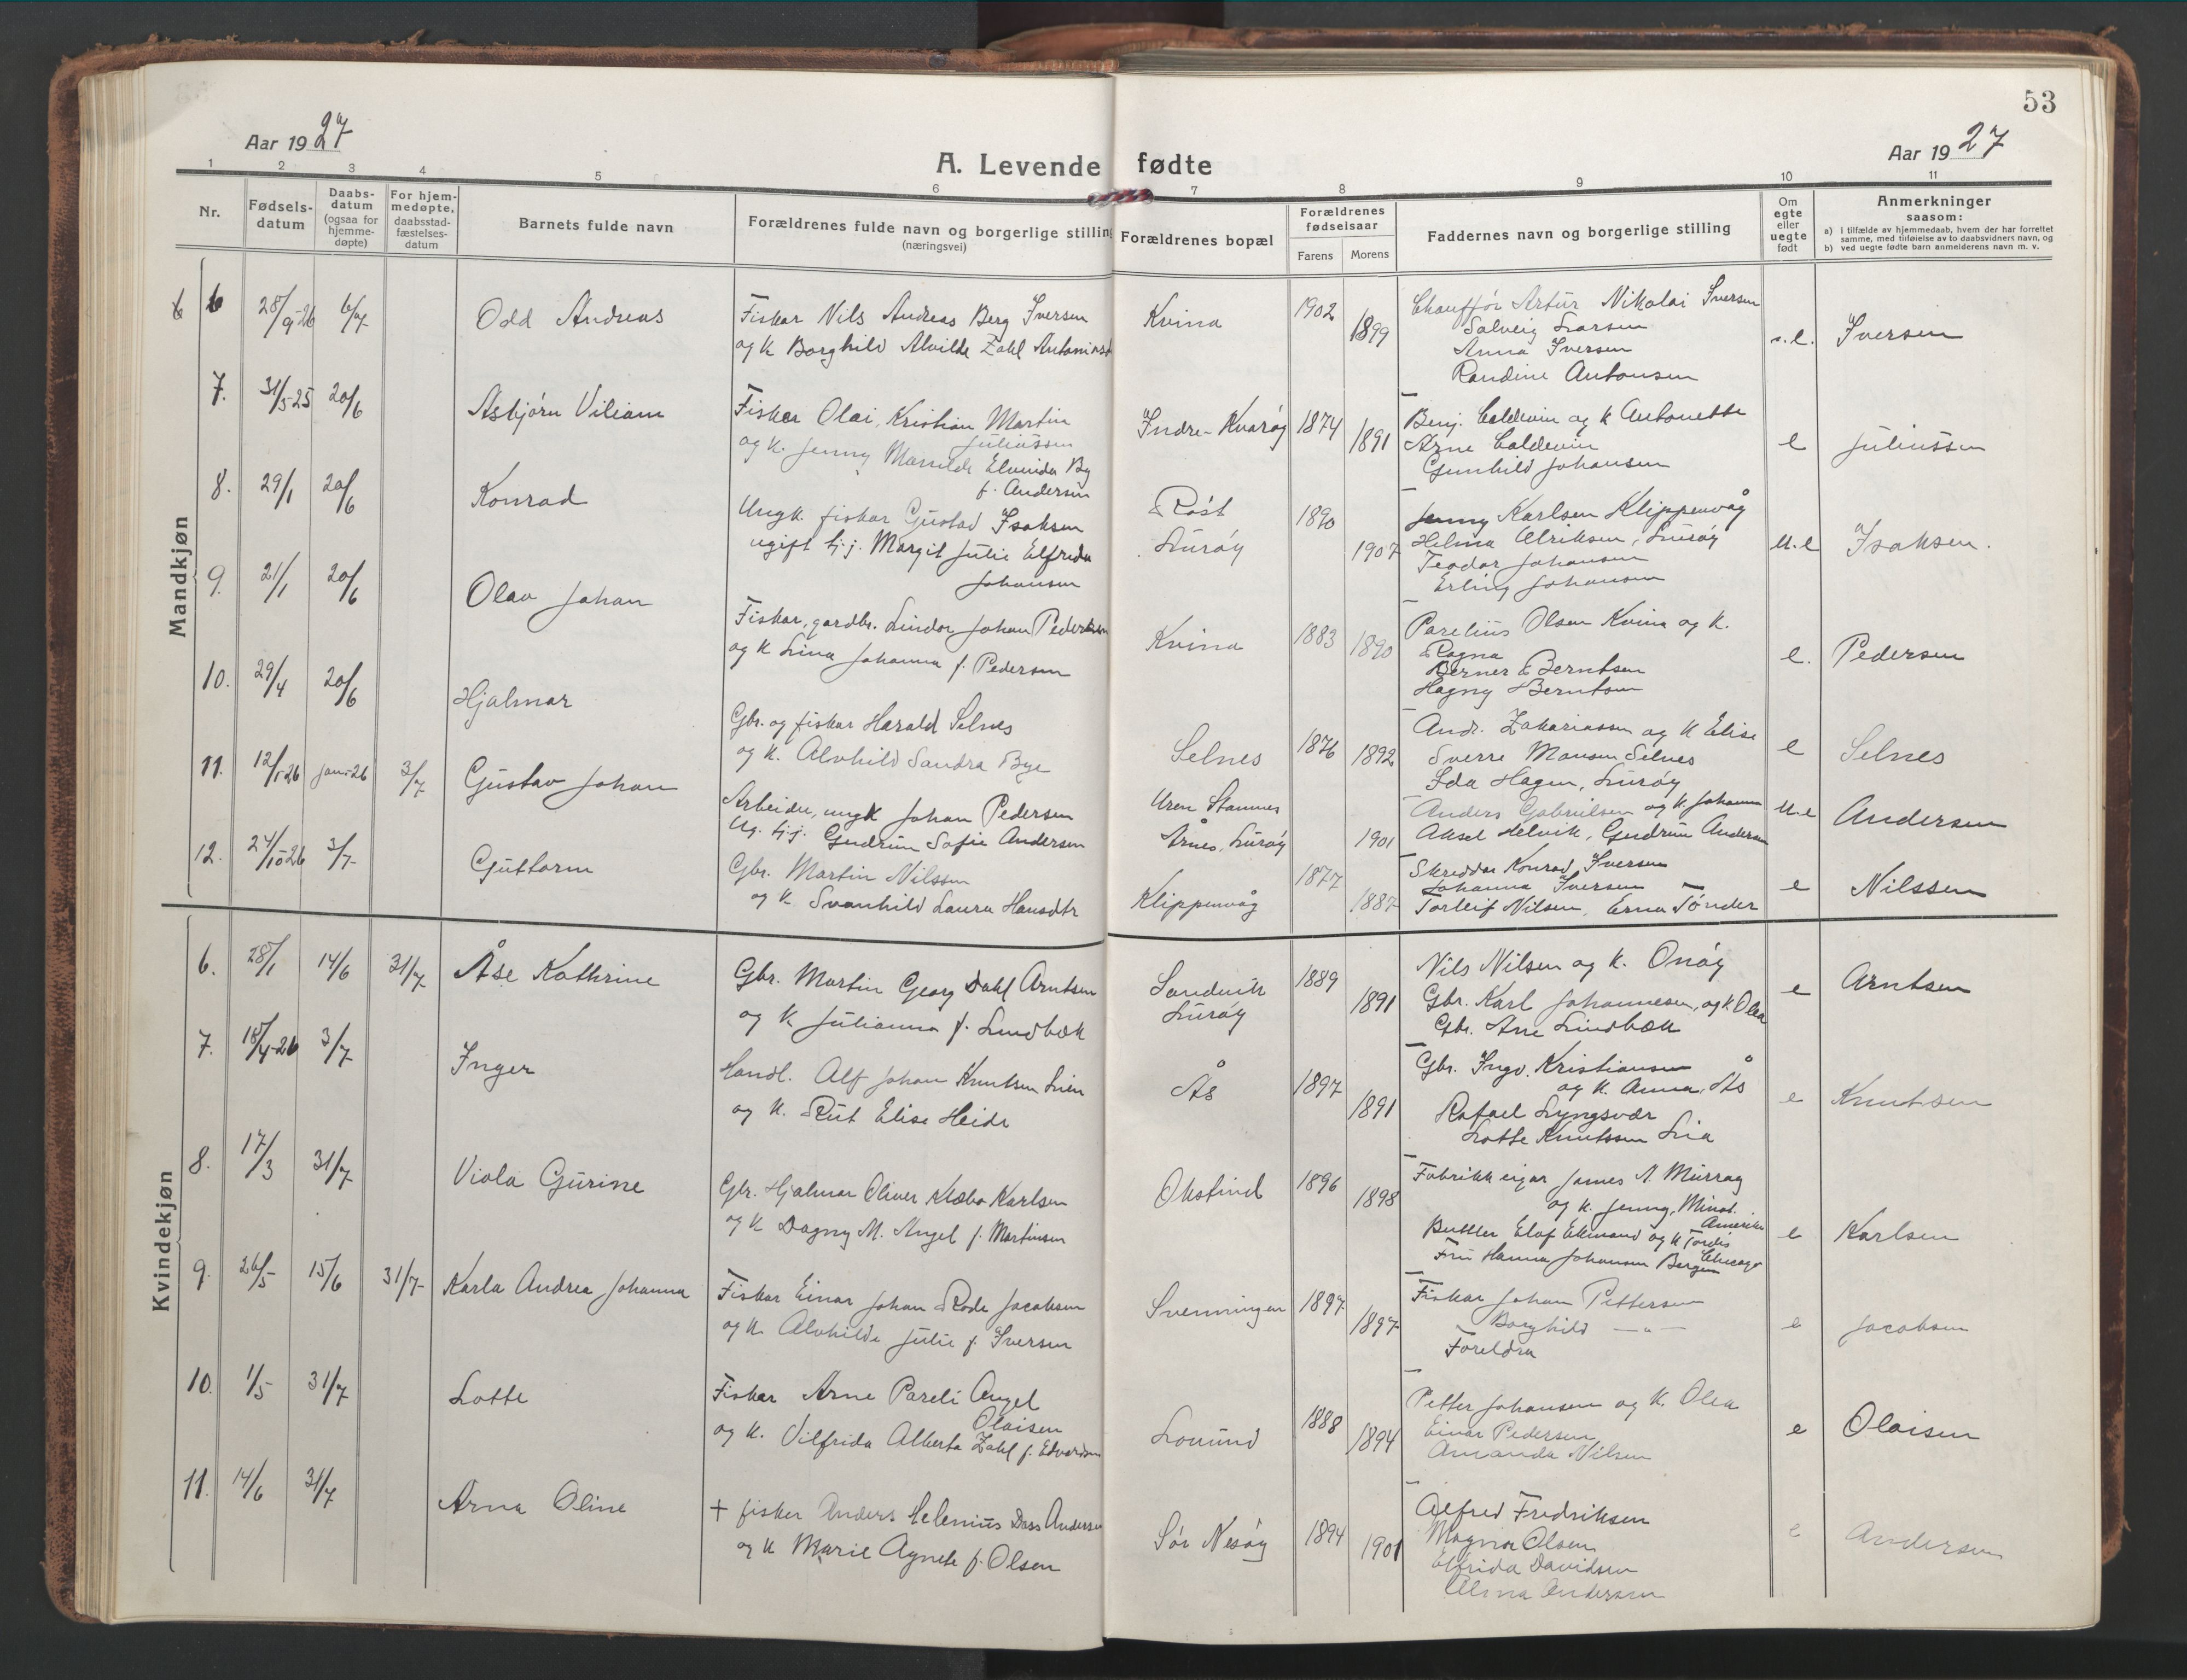 53
Aar 1927
A. Levende fødte
Aar 1927
1 2 3 4 5 6 7 8 9 10 11
Nr.
Fødselsdatum
Daabsdatum (ogsaa for hjemmedøpte)
For hjemmedøpte, daabsstadfæstelsesdatum
Barnets fulde navn
Forældrenes fulde navn og borgerlige stilling (næringsvei)
Forældrenes bopæl
Forældrenes fødselsaar
Farens Morens
Faddernes navn og borgerlige stilling
Om egte eller uegte født
Anmerkninger saasom:
a) i tilfælde av hjemmedaab, hvem der har forrettet samme, med tilføielse av to daabsvidners navn, og
b) ved uegte fødte barn anmelderens navn m. v.
Mandkjøn
6 6 28/9-26 6/7 Odd Andreas
Fiskar Nils Andreas Berg Iversen
og k Borghild Alvilde Zahl
Kvina 1902 1899
Chauffør Artur Nikolai Iversen
Solveig Larsen
Anna Iversen
Randine Antonsen
Iversen
7. 31/5-25 20/6 Asbjørn Viliam
Fiskar Olai, Kristian Martin
Juliussen
og k. Jenny Elvida By
f. Andersen
Indre-Kvarøy 1874 1891
Benj. Caldevin og k Antonette
Arne Caldevin
Gunhild Johansen
e Juliussen
8. 29/1 20/6 Konrad
Ungk. fiskar Gustad Isaksen
ugift tj.j. Margit Julie Elfrida
Johansen
Røst
Lurøy
1890 1907
Jenny Karlsen Klippenvåg
Helma Ulriksen, Lurøy
Teodor Johansen
Erling Johansen
u.e Isaksen.
9. 21/1 20/6 Olav Johan
Fiskar, gardbr. Lindor Johan Pedersen
og k Lina Johanna f. Pedersen
Kvina 1883 1890
Parelius Olsen Kvina og k.
Ragna
Berner E Berntsen
Hagny Berntsen
e. Pedersen
10. 29/4 20/6 Hjalmar
Gbr. og fiskar Harald Selnes
og k. Alvhild Sandra Bye
Selnes 1876 1892
Andr. Zakariassen og k Elise
Sverre Monsen Selnes
Ida Hagen, Lurøy
e Selnes
11. 12/1-26 jan.-26 3/7 Gustav Johan
Arbeider, ungk Johan Pedersen
Ug. tj.j. Gudrun Sofie Andersen
Uren Stamnes
Årnes, Lurøy
1901
Anders Gabrielsen og k. Johanna
Aksel Helvik, Gudrun Andersen
u.e Andersen
12. 24/10-26 3/7 Guttorm
Gbr. Martin Nilssen
og k. Svanhild Laura Hansdtr
Klippenvåg 1877 1887
Skreddar Konrad Iversen
Johanna Iversen
Torleif Nilsen, Erna Tønder
e Nilssen
Kvindekjøn
6. 28/1 14/6 31/7 Åse Kathrine
Gbr. Martin Georg Dahl Arntsen
og k Julianna f. Lundbæk
Sandvik
Lurøy
1889 1891
Nils Nilsen og k. Onøy
Gbr. Karl Johannesen, og k Olea
Gbr. Are Lindbæk
e Arntsen
7. 18/4-26 3/7 Inger
Handl. Alf Johan Knutsen Lien
og k. Rut Elise Heide
Ås 1897 1891
Gbr. Ingv. Kristiansen
og k. Anna, Ås
Rafael Lyngsvær
Lotte Knutssen Lia
e Knutsen
8. 17/3 31/7 Viola Gurine
Gbr. Hjalmar Oliver Klæbo Karlsen
og k Dagny M. Angel f. Martinsen
Okstind 1896 1898
Fabrikkeigar James A. Murray
og k. Jenny, Minot.
Amerika
Buttler Elof Ekmand og k Tordis
Chicago
Fru Hanna Johansen Bergen
e Karlsen
9. 26/5 15/6 31/7 Karla Andrea Johanna
Fiskar Einar Johan Rode Jacobsen
og k. Alvhilde Julie f. Iversen
Svenningen 1897 1897
Fiskar Johan Pettersen
Borghild — " —
Foreldra
e Jacobsen
10. 1/5 31/7 Lotte
Fiskar Arne Pareli Angel
Olaisen
og k. Vilfrida Alberta Zahl f. Edvardsen
Lovund 1888 1894
Petter Johansen og k. Olea
Einar Pedersen
Amanda Nilsen
e Olaisen
11. 14/6 31/7 Arna Oline
+ fisker Anders Helenius Dass Andersen
og k Marie Agnete f. Olsen
Sør Nesøy 1894 1901
Alfred Fredriksen
Magna Olsen
Elfrida Davidsen
Alma Andersen
e Andersen